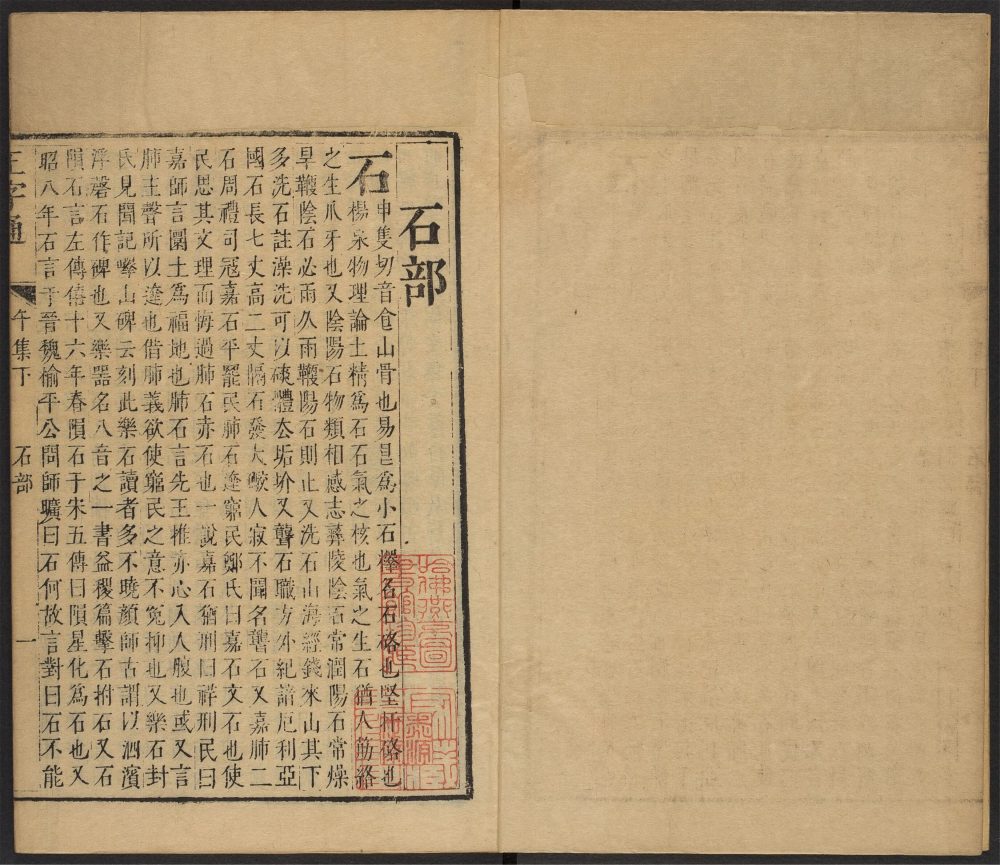 石部
石 申隻切音𥐘山骨也易艮爲小石釋名石硌也堅捍硌也
楊泉物理論土精爲石石氣之核也氣之生石猶人筋絡
之生爪牙也又陰陽石物類相感志彝陵陰石常潤陽石常燥
旱鞭陰石必雨久雨鞭陽石則止又洗石山海經錢來山其下
多洗石註澡洗可以磢體去垢圿又聾石職方外紀諳厄利亞
國石長七丈高二丈隔石發大𨥧人寂不聞名聾石又嘉肺二
石周禮司冦嘉石平罷民肺石達窮民鄭氏曰嘉石文石也使
民思其文理而悔過肺石赤石也一說嘉石猶刑曰祥刑民曰
嘉師言圜土爲福地也肺石言先王推赤心入人腹也或又言
肺主聲所以達也借肺義欲使窮民之意不冤抑也又樂石封
氏見聞記嶧山碑云刻此樂石讀者多不曉顏師古謂以泗濱
浮磬石作碑也又樂器名八音之一書益稷篇擊石拊石又石
隕石言左傳僖十六年春隕石于宋五傳曰隕星化爲石也又
昭八年石言于晉魏榆平公問師曠曰石何故言對曰石不能
正字通
午集下
石部
一
哈佛燕京圖書館